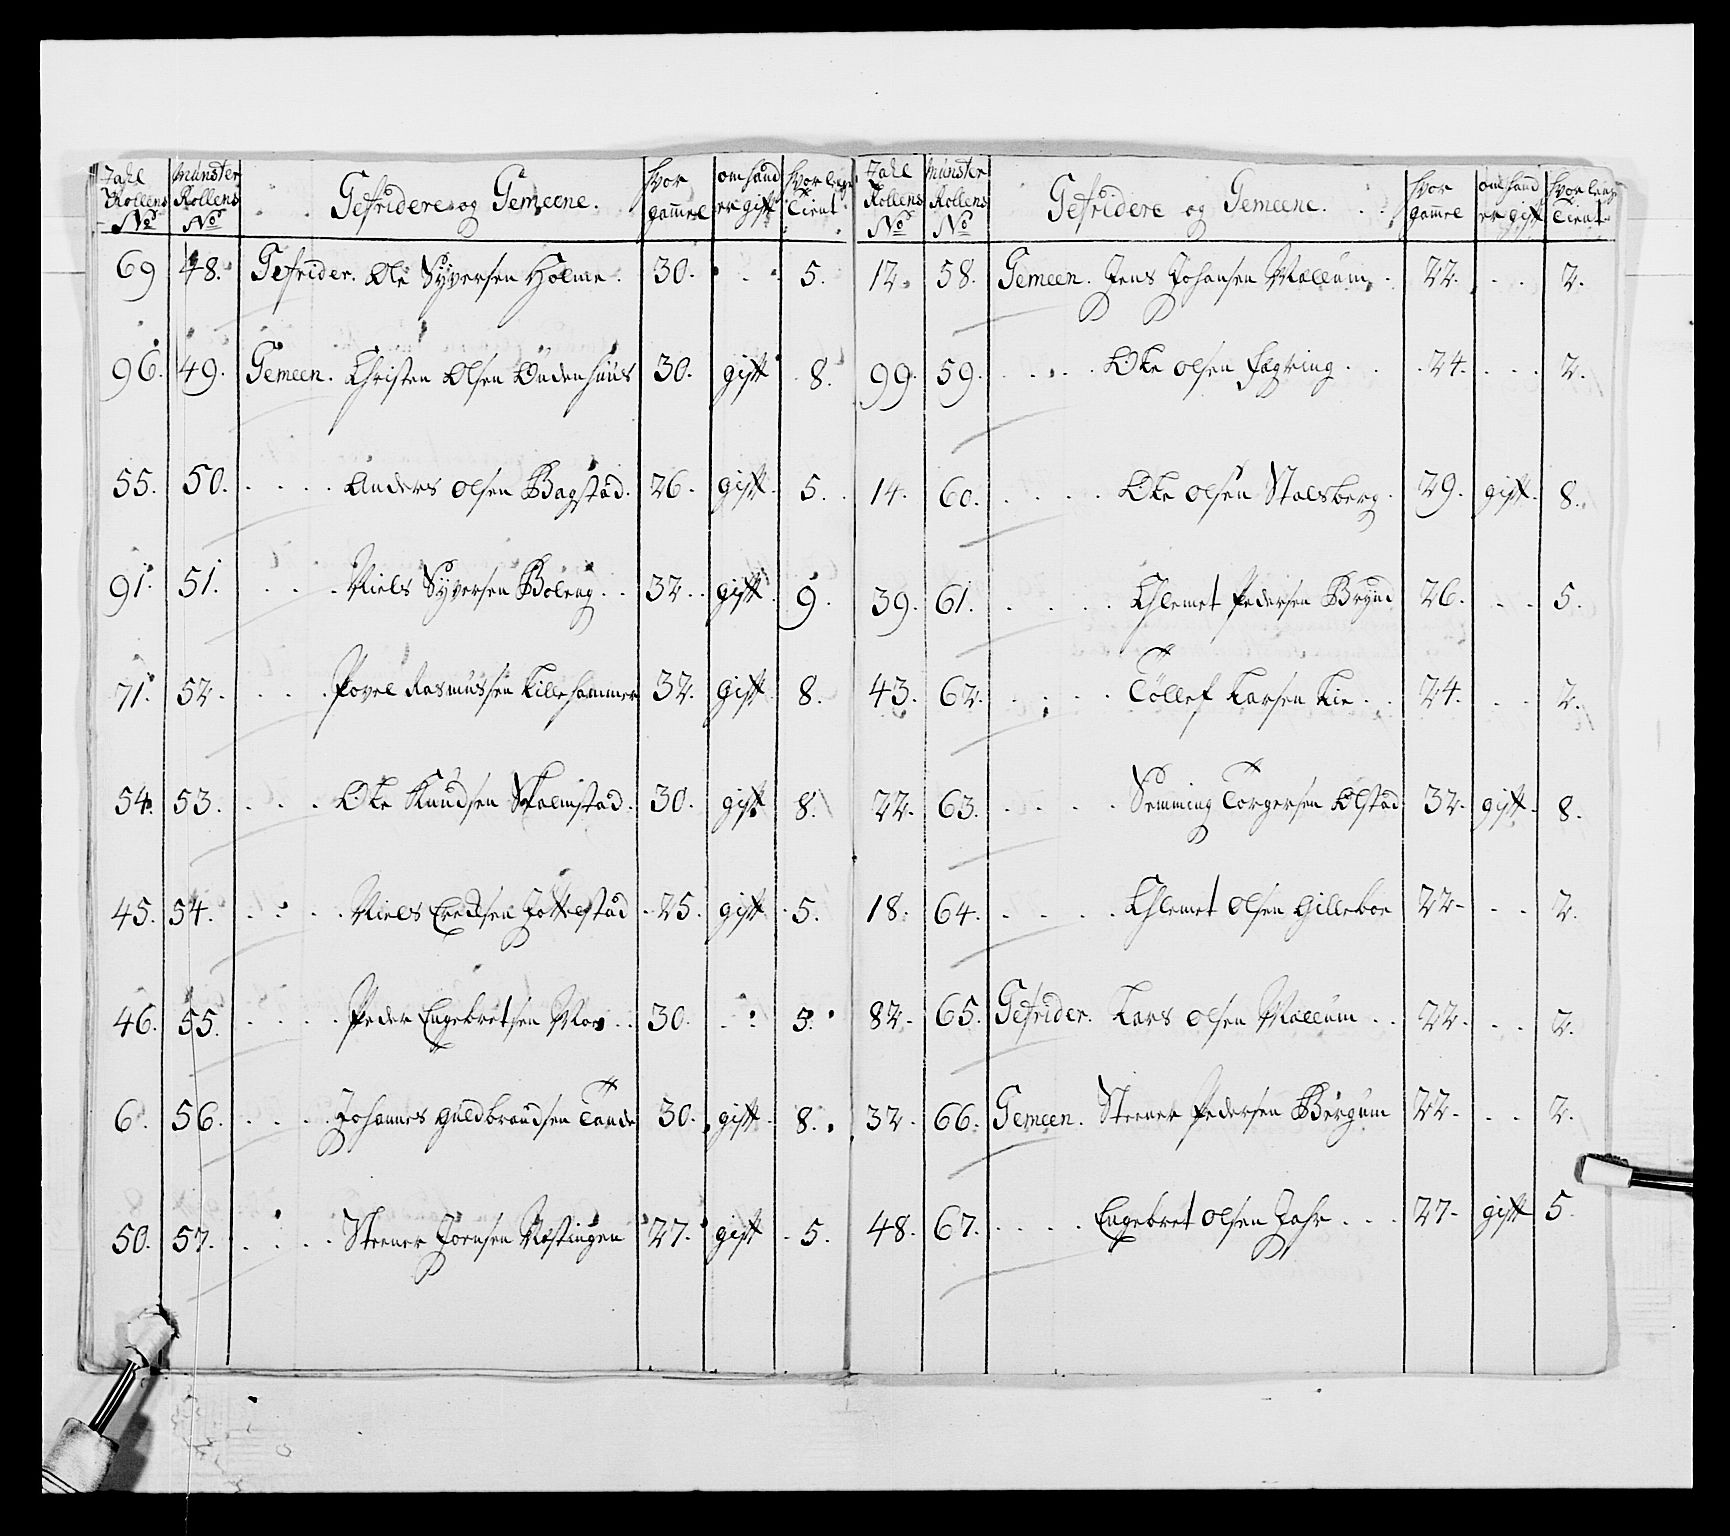 Tahl Rollens No | Münster Rollens No | Gefridere og Gemeene. | hvor gammel | om hand er gift | hvor lenge tient
69 | 48. | Gefrider. Ole Syversen Holme. | 30. | . . . | 5.
96. | 49. | Gemeen. Christen Olsen Ondenhuus | 30. | gift | 8.
55. | 50. | . . . . Anders Olsen Bagstad. | 26. | gift. | 5.
91. | 51. | . . . . Niels Syversen Boleng. . | 32. | gift. | 9.
71. | 52. | . . . . Povel Rasmussen Lillehammer | 32. | gift. | 8.
54. | 53. | . . . . Ole Knudsen Skalmstad. | 30. | gift | 8.
45. | 54. | . . . . Niels Jottestad | 25. | gift | 5.
46. | 55. | . . . . Peder Engebretsen Moe . . | 30. | . . | 5.
6. | 56. | . . . . Johannes Guldbrandsen Tande | 30. | gift | 8.
50. | 57. | . . . . Steener Joensen | 27. | gift | 5.
Tahl Rollens No | Münster Rollens No | Gefridere og Gemeene. . . | hvor gammel | om hand er gift | hvor lenge tient
12. | 58. | Gemeen. Jens Johansen Mællum. | 22. | . . | 2.
99. | 59. | . . . . Ole Olsen Fægring . . | 24. | . . . | 2.
14. | 60. | . . . . Ole Olsen Stalsberg. | 29. | gift. | 8.
39. | 61. | . . . . Chlemet Pedersen Brynd | 26. | . . | 5.
43. | 62. | . . . . Töllef Larsen Lie . . | 24. | . . | 2.
22. | 63. | . . . . Semming Torgersen Olstad | 32. | gift. | 8.
18. | 64. | . . . . Chlemet Olsen Gilleboe | 22. | . . | 2.
82. | 65. | Gefrider. Lars Olsen Mællum . . | 22. | . . | 2.
32. | 66. | Gemeen. Steener Pedersen Bergum | 22. | . . | 2.
48. | 67. | . . . . Engebret Olsen Jahr . . . | 27. | gift | 5.